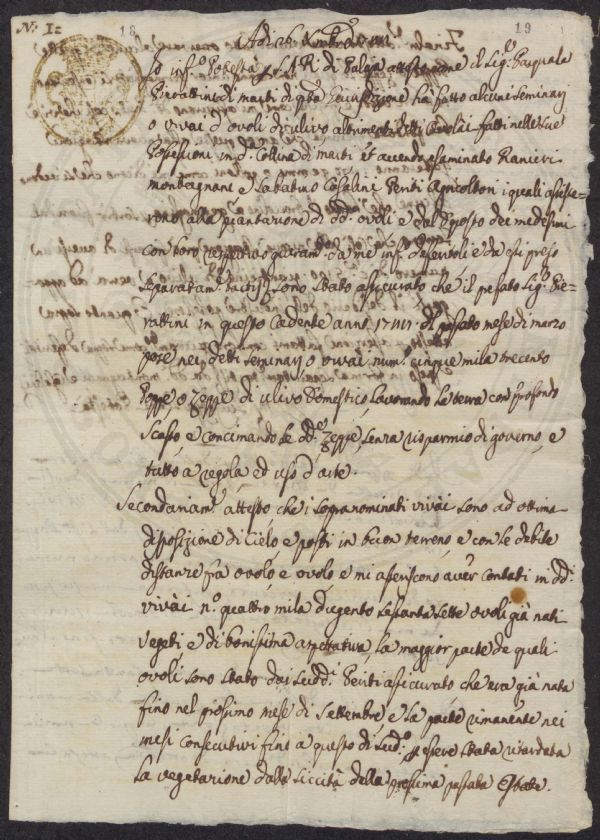 N.° I=
18
19
Adì 26
Io inf.° Potestà p S.A.R. di Palaja attesto come il Sig.r Pasquale
Pierattini di marti di q.ta Giurisdizione ha fatto alcuni Seminarj
o vivai d'ovoli d'ulivo altrimenti detti Ovolai fatti nelle sue
Possessioni in d.a Collina di marti et avendo esaminato Ranieri
montagnani e Sabatino Casalini Periti Agricoltori i quali assiste-
rono alla piantazione di dd.i ovoli e dal Deposto dei medesimi
con loro respettivo giuram.to da me inf.° desentoli e da essi preso
separatam.e tactis sono stato assicurato che il prefato Sig.r Pie-
rattini in questo cadente anno di passato mese di marzo
pose nei detti Seminarj o vivai num.° cinque mila trecento
Poppe o Zeppe di ulivo domestico, lavorando la terra con profondo
scasso e concimando le dd.e zeppe, senza risparmio di governo, e
tutto a regola ed uso d'arte.
Secondariam.e attesto che i sopranominati vivai sono ad ottima
disposizione di Cielo, e posti in buon terreno e con le debite
distanze fra ovolo, e ovolo e mi asseriscono aver contati in dd.i
vivai n.° quattro mila dugento sessanta sette ovoli già nati
vegeti e di bonissima aspettativa, la maggior parte de quali
ovoli sono stato dai sudd.i Periti assicurato che era già nata
fino nel prossimo mese di Settembre, e la parte rimanente nei
mesi consecutivi fino a questo dì sud.° p esere stata ritardata
la vegetazione dalla siccità della prossima passata Estate.